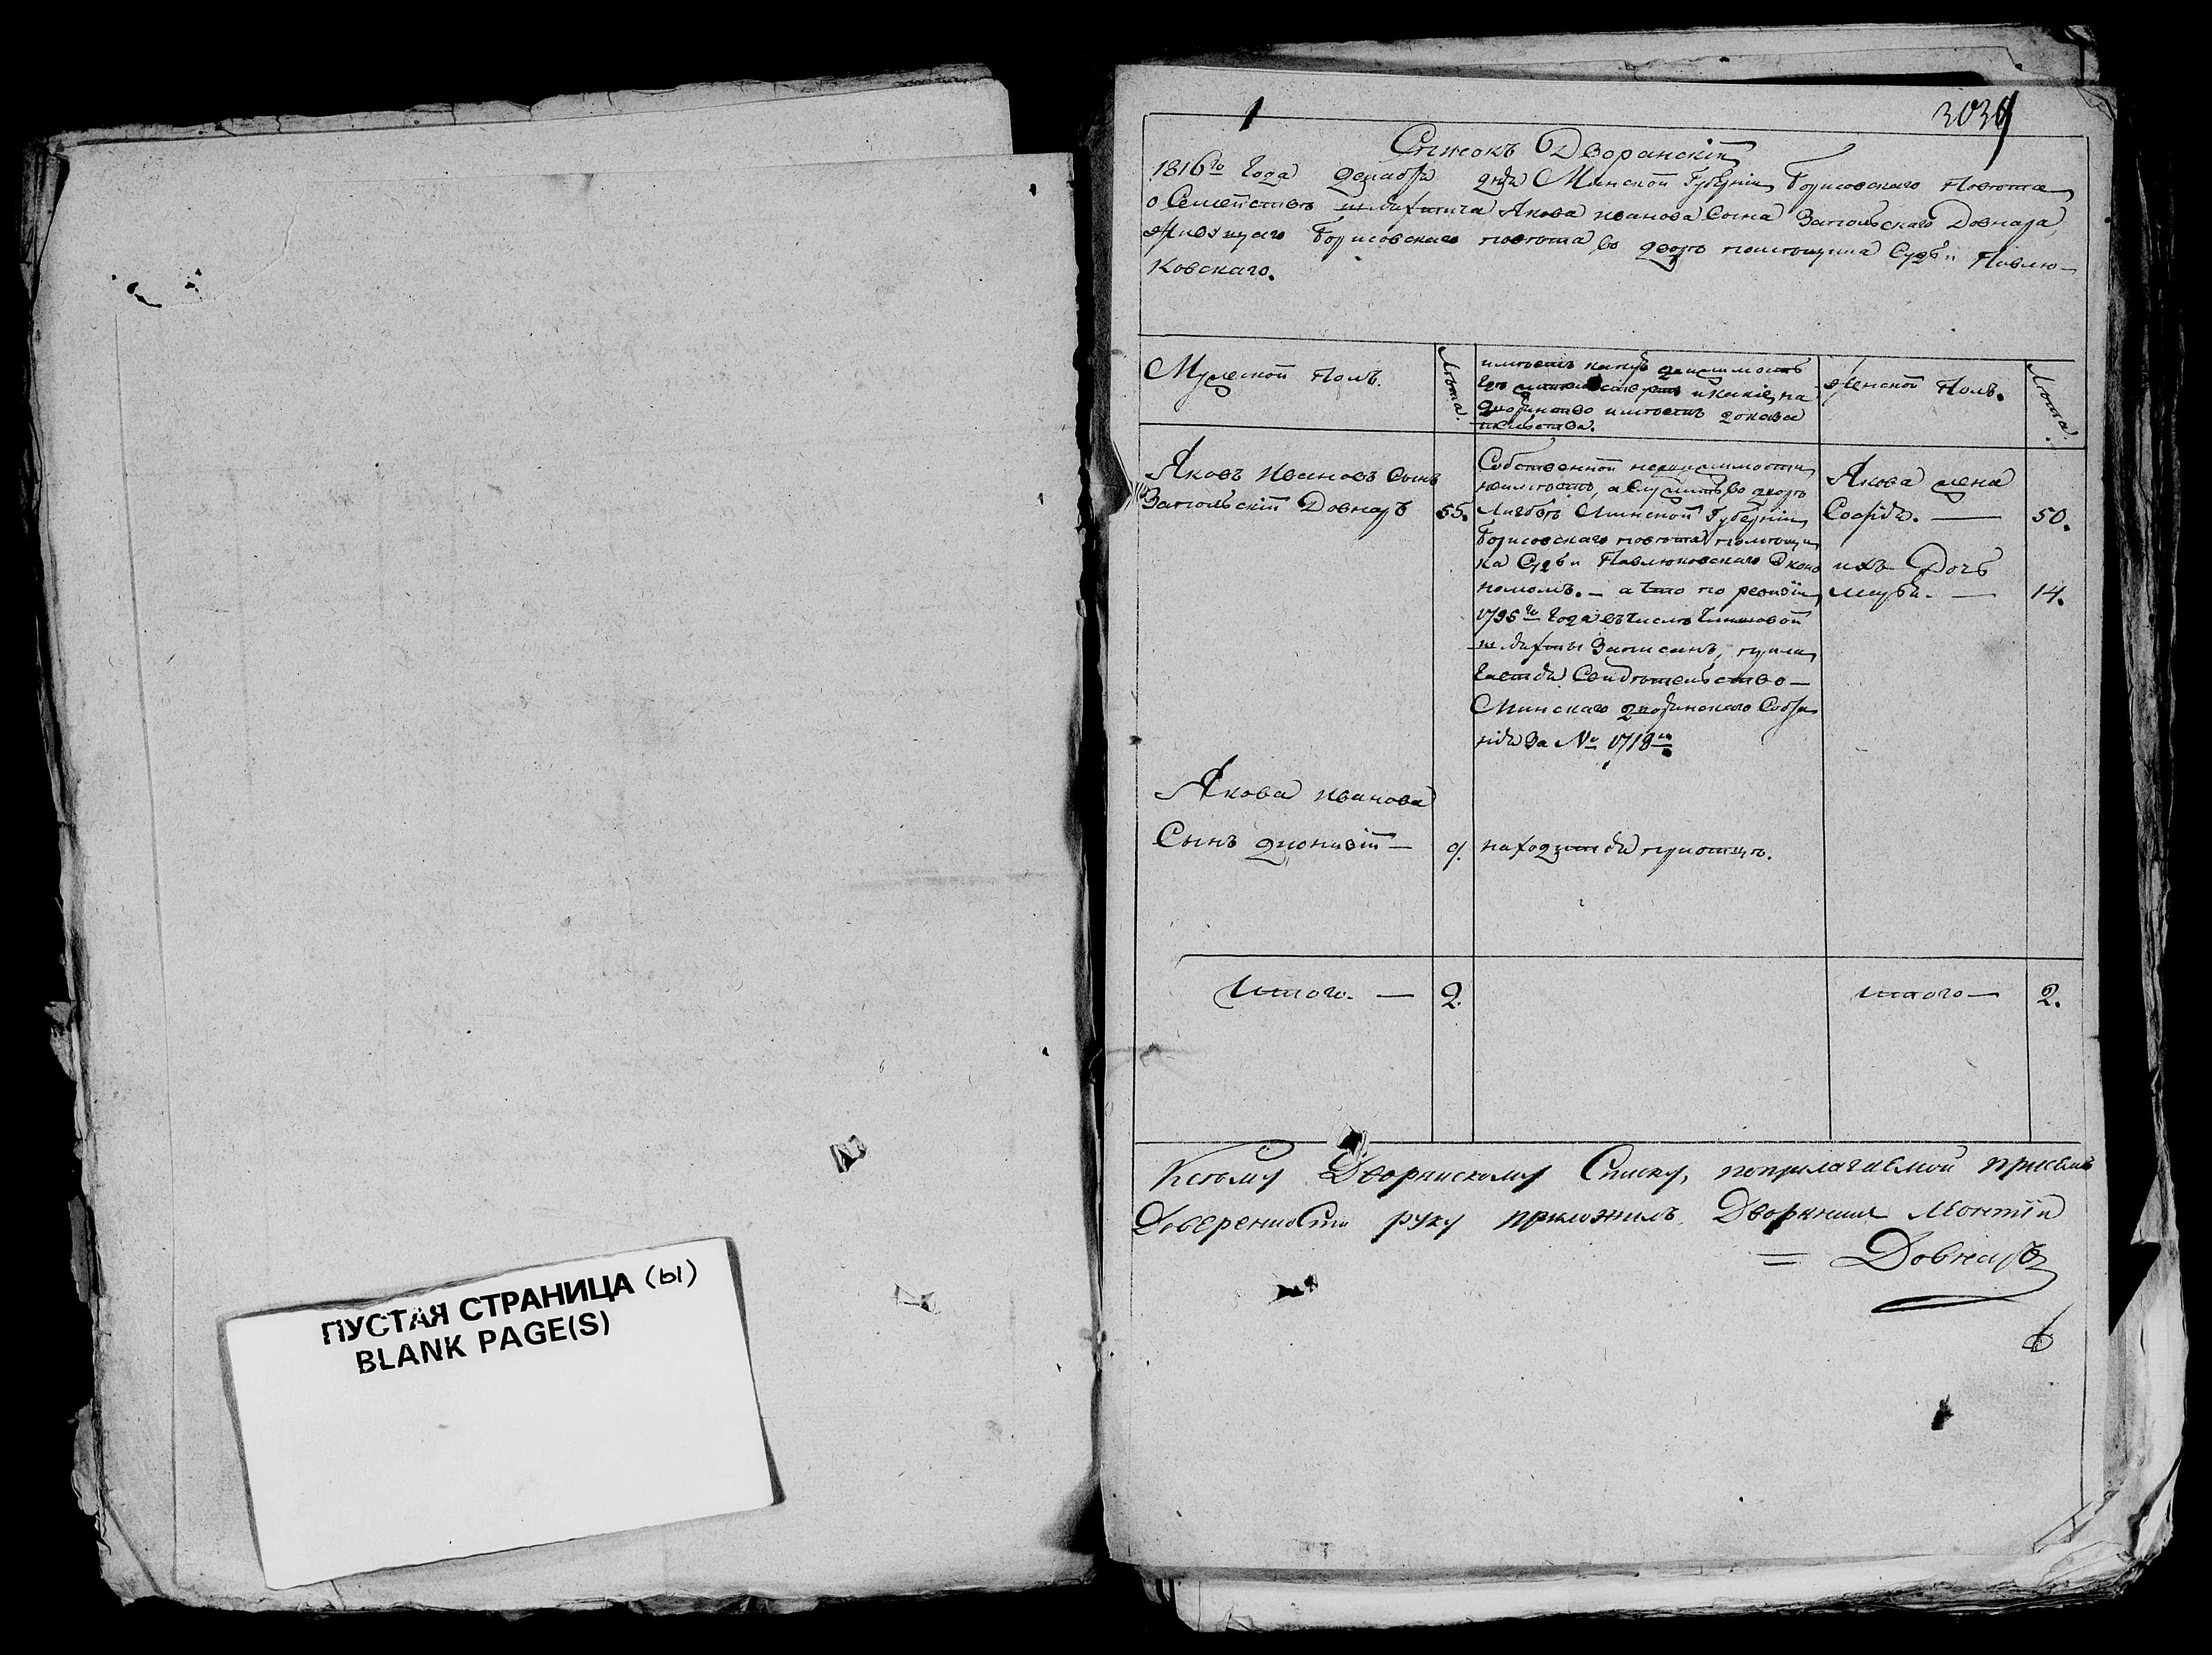 ПУСТАЯ СТРАНИЦА (ы)
BLANK PAGE(S)
1
Списокъ Дворянскій
1816го Года декабря дня Минской Губерніи Борисовскаго Повѣта
о Семействѣ шляхтича Якова Иванова Сына Запольскаго Довнара
живущаго Борисовскаго повѣта во дворѣ помѣщика Судьи Павлю-
ковскаго.
Мужеской Полъ.
Лѣта.
имѣетъ какую недвижимость
и какіе на
дворянство имѣетъ доказа
тельства.
Женской Полъ.
Лѣта.
Яковъ Ивановъ Сынъ
Запольскій Довнаръ
55.
Собственной недвижимости
неимѣетъ, а служитъ во дворѣ
Минской Губерніи
Борисовскаго повѣта помѣщи
ка Судьи Павлюковскаго Эконо
номомъ. — а что по ревизіи
1795го Года въ числѣ Чиншовой
шляхты Записанъ, прила
гается Свидѣтельство —
Минскаго дворянскаго Собра
нія За № 1719м
Якова жена
Софія. —
50.
ихъ Дочь
14.
Якова Иванова
Сынъ Діонизій —
9.
находится при отцѣ.
Итого. —
2.
итого —
2.
Ксѣму Дворянскому Списку, поприлагаемой присемъ
Довѣренности руку приложилъ Дворянинъ
= Довнаръ